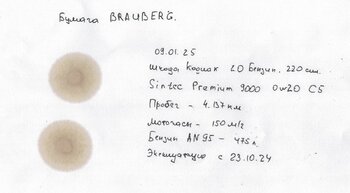 Бумага BRAUBERG.
09.01.25
Шкода Кодиак 2.0 бензин, 220 сил.
Sintec Premium 9000 0w20 C5
Пробег - 4.137 км
Моточасы - 150 м/ч
Бензин АИ95 - 475 л
Эксплуатация с 23.10.24